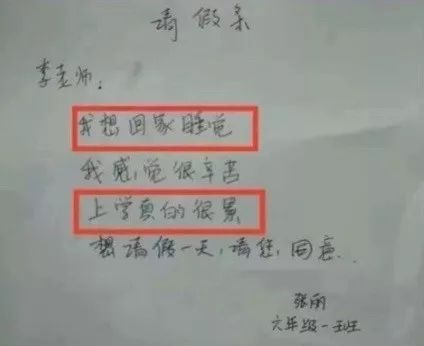 请假条
李老师:
我想回家睡觉
我感觉很辛苦
上学真的很累
想请假一天,请您,同意..
张丽
六年级一班班